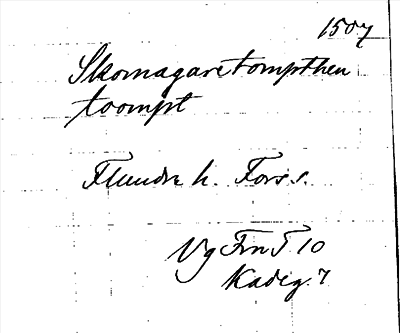 1507
Skomagaretompthen
toompt
Flundre h. Fors s.
Vg Frn S 10
Kadeg. 7